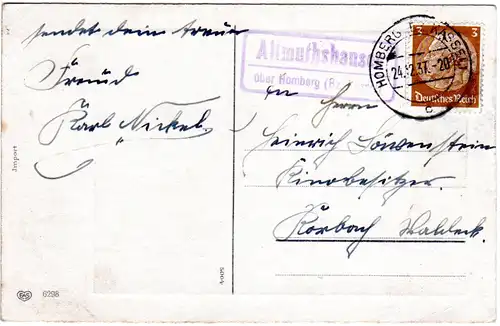 sendet dein treuer
Freund
Karl Nickel.
Import
6298
Altmuthshausen
über Homberg
HOMBERG KASSEL
24.12.37.-20
c
3 3
Deutsches Reich
An Herrn
Heinrich Löwenstein
Kinobesitzer.
Korbach Waldeck.